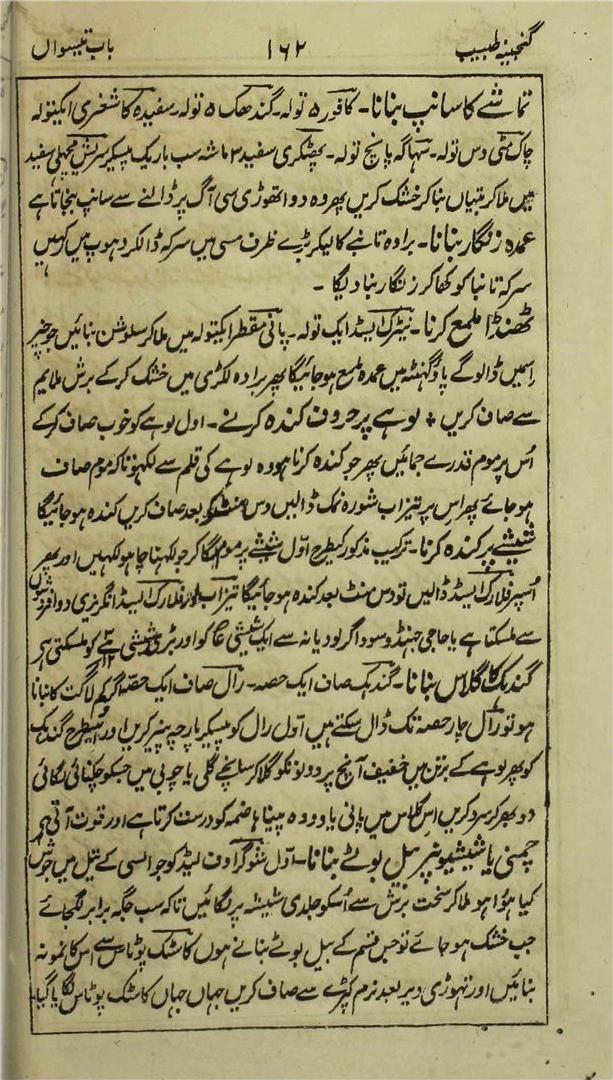 گنجینہ طبیب ۱۶۲ باب تیسواں
تماشے کا سانپ بنانا۔ کافور ۵ تولہ۔ گندھک ۵ تولہ۔ سفیدہ کاشغری ایکتولہ
چاک مٹی دس تولہ۔ سہاگہ پانچ تولہ۔ پھٹکری سفید ۳ ماشہ سب باریک پیسکر سریش مچھلی سفید
میں ملا کر بتیاں بنا کر خشک کریں پھر وہ دوا تھوڑی سی آگ پر ڈالنے سے سانپ بنجاتا ہے
عمدہ زنگار بنانا۔ براوہ تانبے کا لیکر بڑے ظرف مسی میں سرکہ ڈالکر دہوپ میں رکہیں
سرکہ تانبا کو کھا کر زنگار بنا دیگا ۔
ٹھنڈا ملمع کرنا۔ نیٹرک ایسڈ ایک تولہ۔ پانی مقطر ایکتولہ میں ملا کر سلوشن بنائیں جو چیز
اسمیں ڈالو گے پاؤ گہنٹہ میں عمدہ ملمع ہو جائیگا پھر برادہ لکڑی میں خشک کر کے برش ملایم
سے صاف کریں + لوہے پر حروف کندہ کرنے۔ اول لوہے کو خوب صاف کر کے
اُس پر موم قدرے جمائیں پھر جو کندہ کرنا ہو وہ لوہے کی قلم سے لکہو تاکہ موم صاف
ہو جائے پھر اس پر تیزاب شورہ نمک ڈالیں دس منٹ کے بعد صاف کریں کندہ ہو جائیگا
شیشے پر کندہ کرنا۔ ترکیب مذکور کیطرح اول شیشے پر موم لگا کر جو لکہنا چاہو لکہیں اور پھر
اُسپر فلارک ایسڈ ڈالیں تو دس منٹ بعد کندہ ہو جائیگا تیزاب فلارک ایسڈ انگریزی دوا فروشوں
سے ملسکتا ہے یا حاجی جہنڈو سوداگر لودیانہ سے ایک شیشی کو اور بڑی شیشی کو ملسکتی ہے
گندہک کا گلاس بنانا۔ گندہک صاف ایک حصہ۔ رال صاف ایک حصہ اگر کم لاگت کا بنانا
ہو تو رال چار حصہ تک ڈال سکتے ہیں اول رال کو پیسکر پارچہ پنیر کریں اور اسیطرح گندہک
کو پھر لوہے کے برتن میں خفیف آنچ پر دونونکو گلا کر سانچے گلی یا چوبی میں جسکو چکنائی لگائی
ہو بھر کر سرد کریں اس گلاس میں پانی یا دودہ پینا ہاضمہ کو درست کرتا ہے اور قوت آتی ہے
چمنی یا شیشیونپر بیل بوٹے بنانا۔ اول شوگر اوف لیڈ کو جو السی کے تیل میں جوش
کیا ہوا ہو ملا کر سخت برش سے اُسکو جلدی شیشہ پر لگائیں تاکہ سب جگہ برابر لگجائے
جب خشک ہو جائے تو جس قسم کے بیل بوٹے بنانے ہوں کاسٹک پوٹاس سے اس کا نمونہ
بنائیں اور تہوڑی دیر بعد نرم کپڑے سے صاف کریں جہاں جہاں کاسٹک پوٹاس لگایا گیا۔